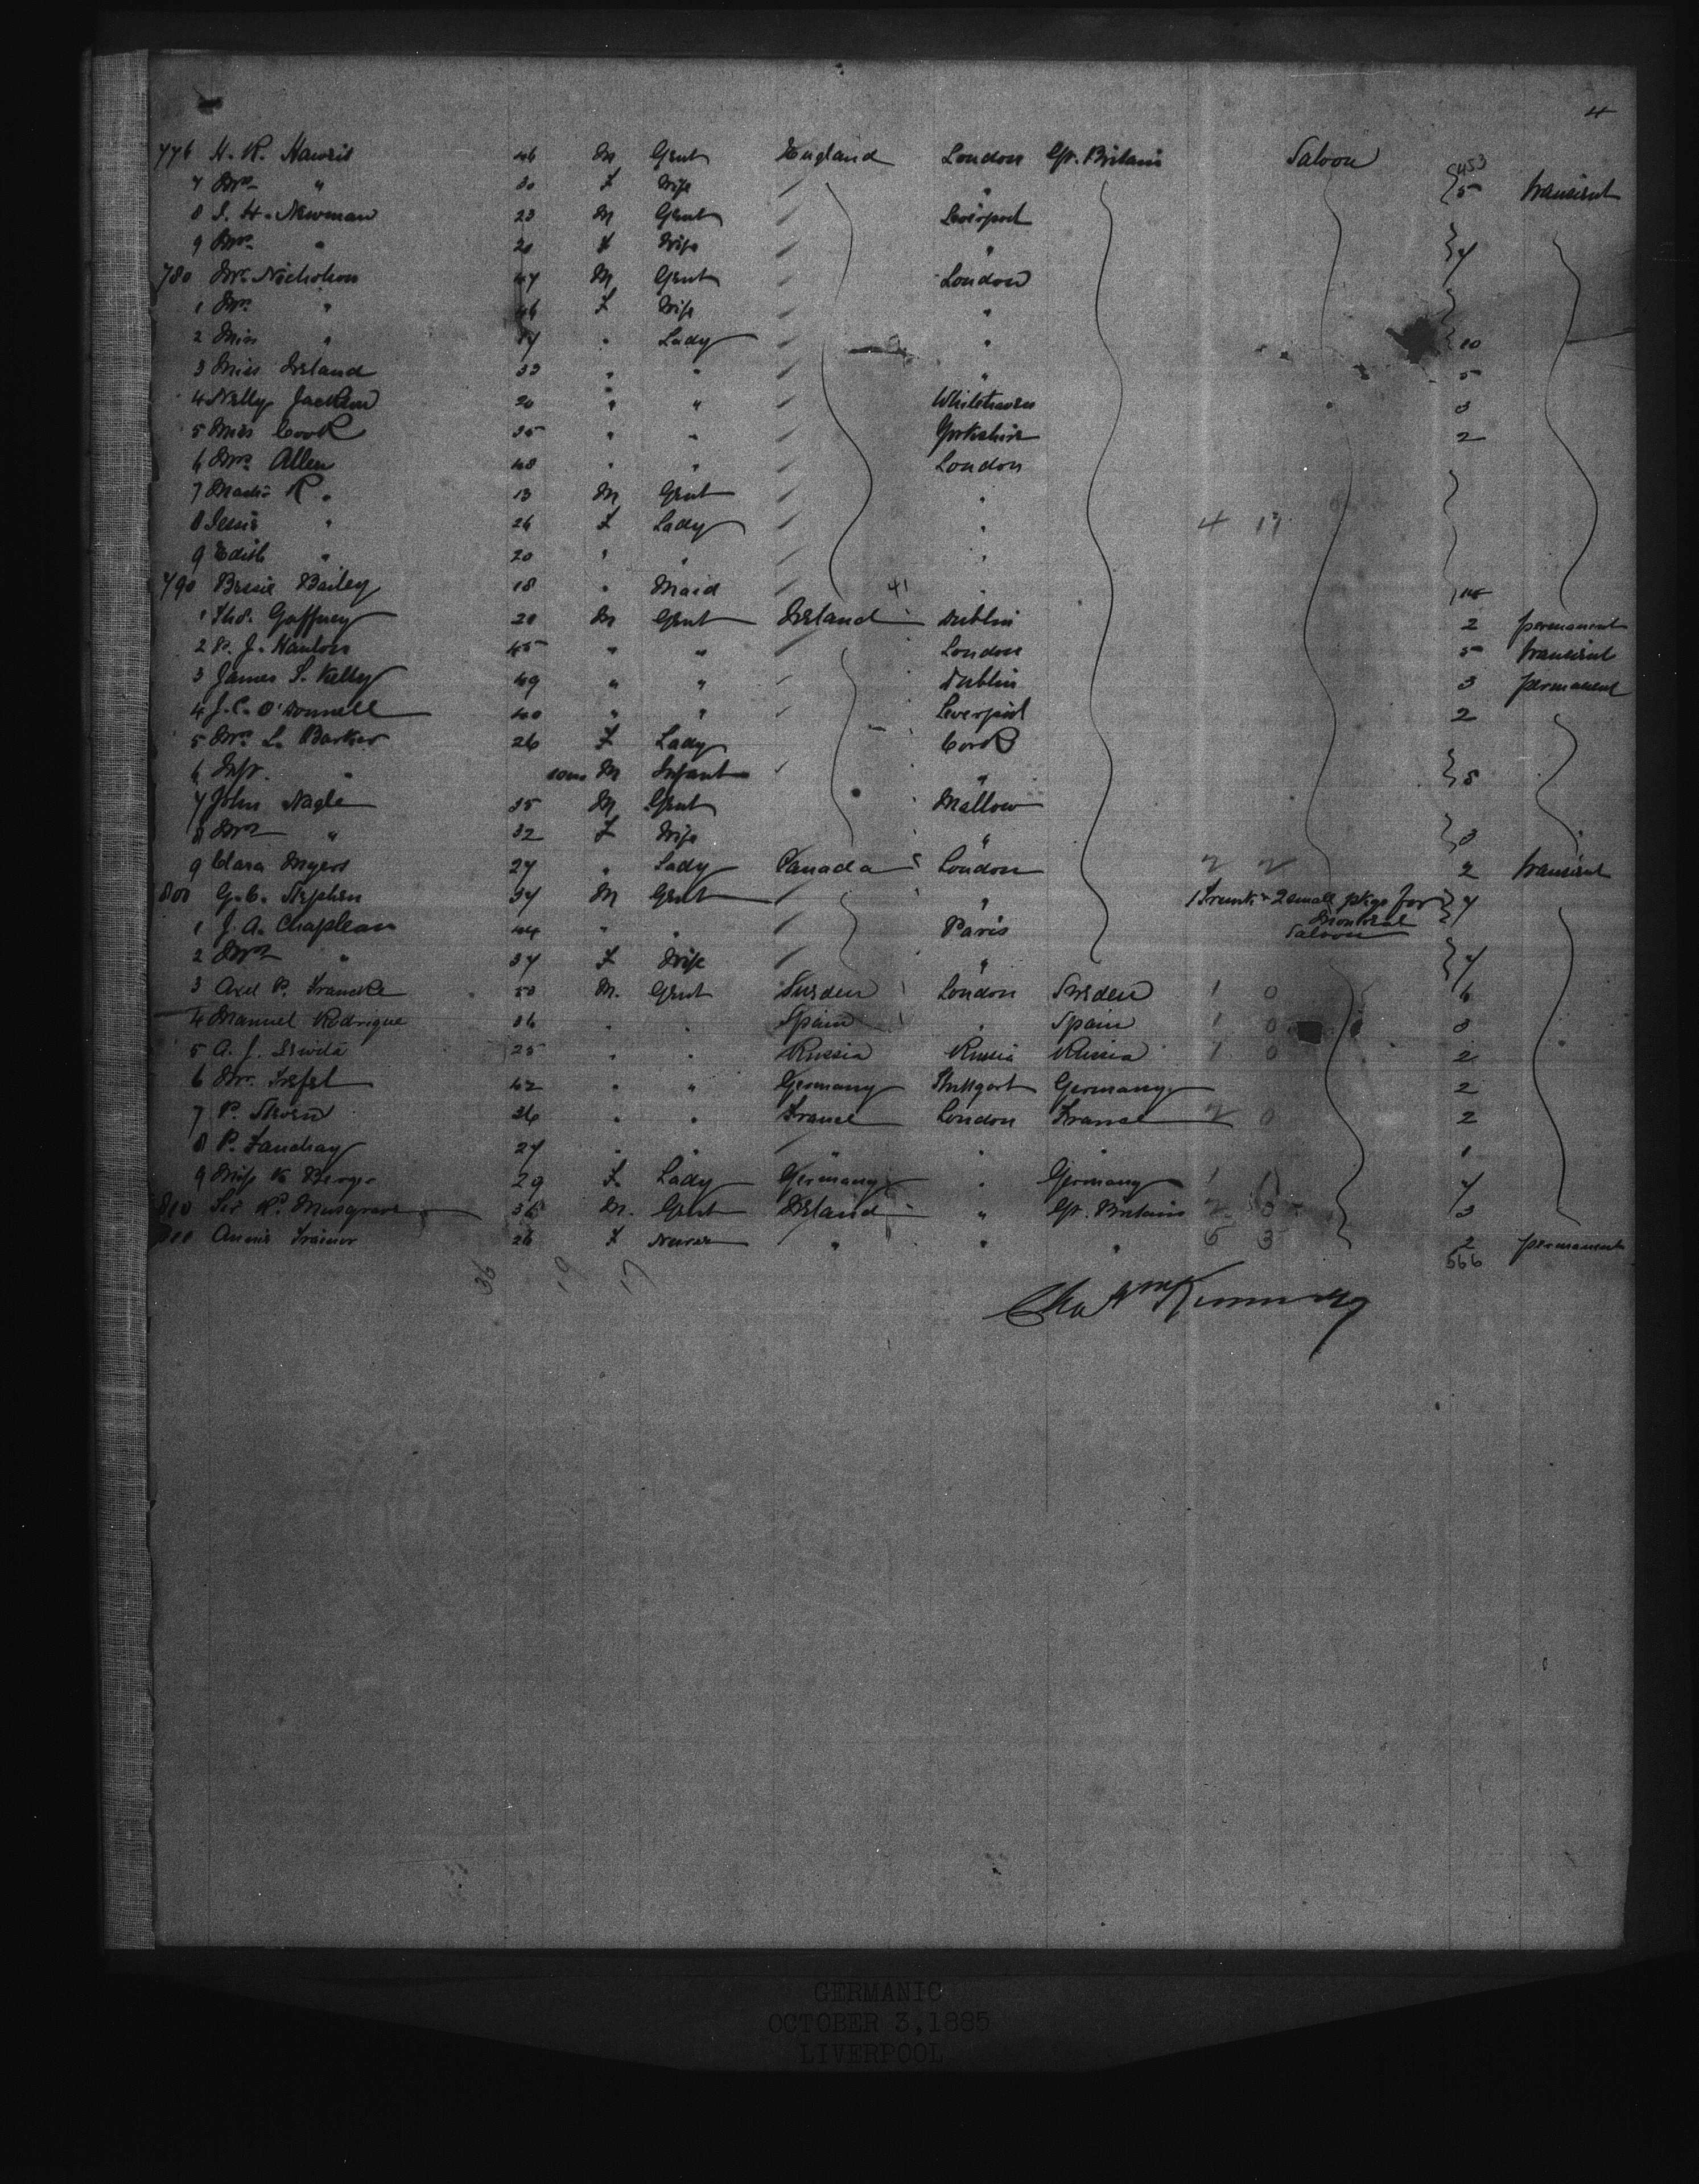 4
776 H. R. Haweis 46 M Gent England London Gt. Britain Saloon 453
7 Mrs " 30 F Wife " } 5 transient
8 S. H. Newman 23 M Gent Liverpool
9 Mrs " 20 F Wife " } 7
780 Mr. Nicholson 47 M Gent London
1 Mrs " 46 F Wife "
2 Miss " " Lady " } 10
3 Miss Ireland 33 " " " 5
4 Nelly Jackson 20 " " Whitehaven 3
5 Miss Cook 35 " " Yorkshire 2
6 Mrs Allen 48 " " London
7 R. " 13 M Gent "
8 Jessie " 26 F Lady " 4 17
9 Edith " 20 " " "
790 Bessie Bailey 18 " Maid 41 "
1 Thos. Gaffney 20 M Gent Ireland Dublin 2 permanent
2 P. J. Hanlon 45 " " London 5 transient
3 James S. Kelly 49 " " Dublin 3 permanent
4 J. C. O'Donnell 40 " " Liverpool 2
5 Mrs L. Barker 26 F Lady Cork
6 Inft. " M Infant " } 5
7 John Nagle 35 M Gent Mallow
8 Mrs " 32 F Wife " } 3
9 Clara Myers 27 " Lady Canada London 2 transient
800 G. C. Stephen 37 M Gent " 1 Trunk + 2 small pkgs for } 7
Montreal
1 J. A. Chapleau 44 " " Paris Saloon
2 Mrs " 37 F Wife " } 7
3 Axel P. Francke 50 M. Gent Sweden London Sweden 1 0 6
4 Manuel Rodrigue 36 " " Spain " Spain 1 0 3
5 A. J. 25 " " Russia Russia Russia 1 0 2
6 Mr. 42 " " Germany Stuttgart Germany 2
7 P. 26 " " France London France 2 0 2
8 P. 27 " " " " " 1
9 Miss K. Berger 29 F. Lady Germany " Germany 1 7
810 Sir R. Musgrave 35 M. Gent Ireland " Gt. Britain 2 0 3
Annie Trainor 26 F Nurse " " " 6 3 2 permanent
36 19 17 566
GERMANIC
OCTOBER 3, 1885
LIVERPOOL